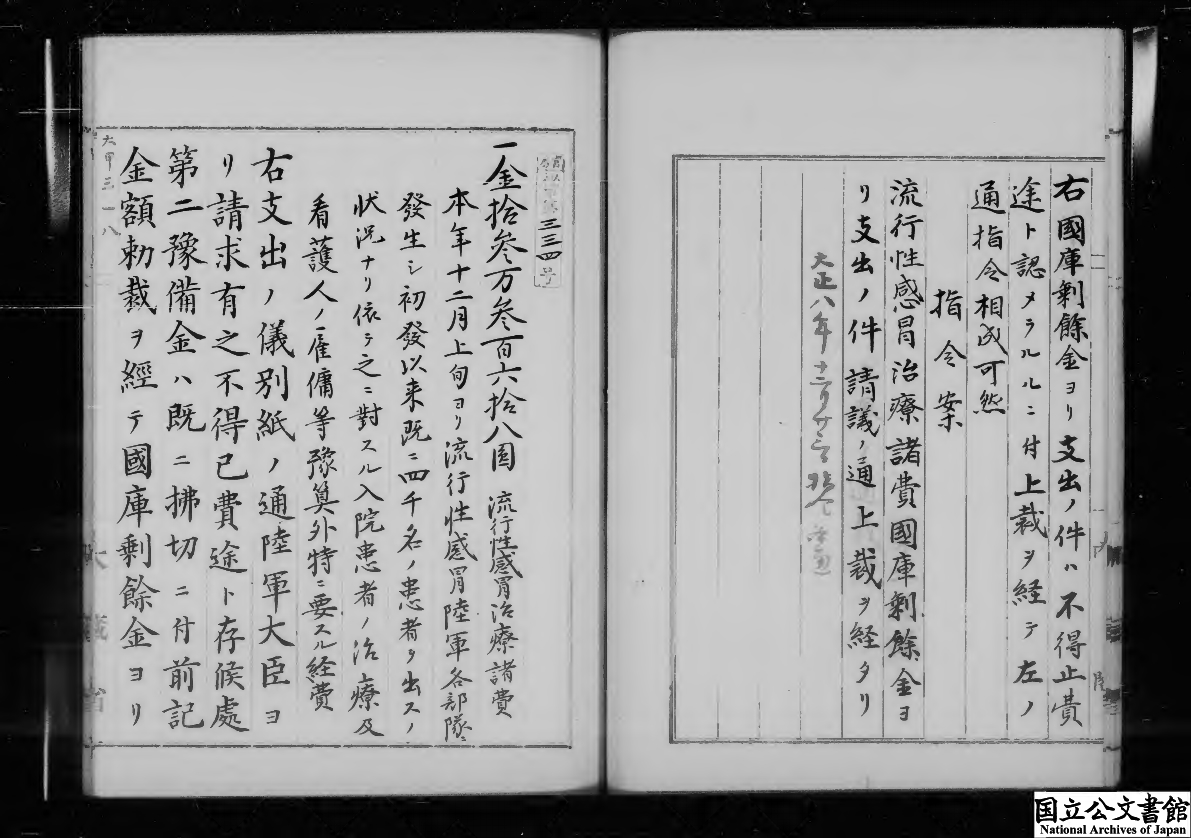 右國庫剰餘金ヨリ支出ノ件ハ不得止費
途ト認メラルルニ付上裁ヲ経テ左ノ
通指令相成可然
指令案
流行性感冒治療諸費國庫剰餘金ヨ
リ支出ノ件請議ノ通上裁ヲ経タリ
大正八年十二月廿三日
三三四号
一金拾参万参百六拾八圓 流行性感冒治療諸費
本年十二月上旬ヨリ流行性感冒陸軍各部隊ニ
發生シ初發以来既ニ四千名ノ患者ヲ出スノ
状況ナリ依テ之ニ對スル入院患者ノ治療及
看護人ノ雇傭等豫算外特ニ要スル経費
右支出ノ儀別紙ノ通陸軍大臣ヨ
リ請求有之不得已費途ト存候處
第二豫備金ハ既ニ拂切ニ付前記
金額勅裁ヲ經テ國庫剰餘金ヨリ
大甲三一八
大藏省
国立公文書館
National Archives of Japan